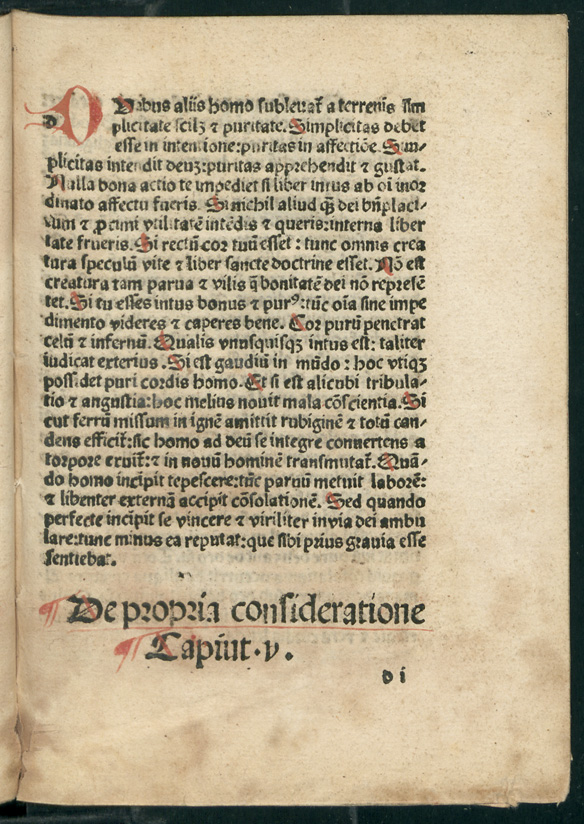 D Vabus aliis homo subleuat᷑ a terrenis sim
plicitate scilꝫ ⁊ puritate. Simplicitas debet
esse in intentione:puritas in affectiōe. Sim-
plicitas intendit deuꝫ:puritas apprehendit ⁊ gustat.
Nulla bona actio te impediet si liber intus ab oī inor
dinato affectu fueris. Si nichil aliud q̄ȝ dei bn̄placi-
tum ⁊ ꝓximi vtilitatē intēdis ⁊ queris:interna liber
tate frueris. Si rectū cor tuū esset : tunc omnis crea
tura speculū vite ⁊ liber sancte doctrine esset. Nō est
creatura tam parua ⁊ vilis q̄ bonitatē dei nō represē
tet. Si tu esses intus bonus ⁊ purꝰ:tūc oīa sine impe
dimento videres ⁊ caperes bene. Cor purū penetrat
celū ⁊ infernū. Qualis vnusquisqꝫ intus est: taliter
iudicat exterius. Si est gaudiū in mūdo : hoc vtiqꝫ
possidet puri cordis homo. Et si est alicubi tribula-
tio ⁊ angustia:hoc melius nouit mala cōscientia. Si
cut ferrū missum in ignē amittit rubiginē ⁊ totū can-
dens efficit᷑:sic homo ad deū se integre conuertens a
torpore exuit᷑:⁊ in nouū hominē transmutat᷑. Quā-
do homo incipit tepescere:tūc paruū metuit laborē:
⁊ libenter externā accipit cōsolationē. Sed quando
perfecte incipit se vincere ⁊ viriliter in via dei ambu
lare:tunc minus ea reputat:que sibi prius grauia esse
sentiebat.
¶ De propria consideratione
¶ Capiut.v.
d i